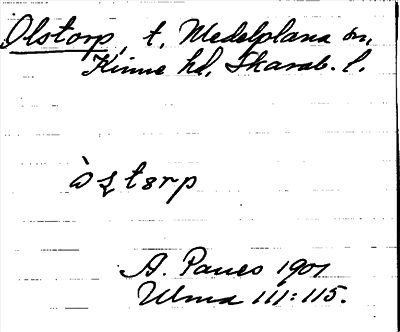 Olstorp, t. Medelplana sn,
Kinne hd, Skarab. l.
òʂtɜrp
A. Paues 1901
Ulma 111:115.